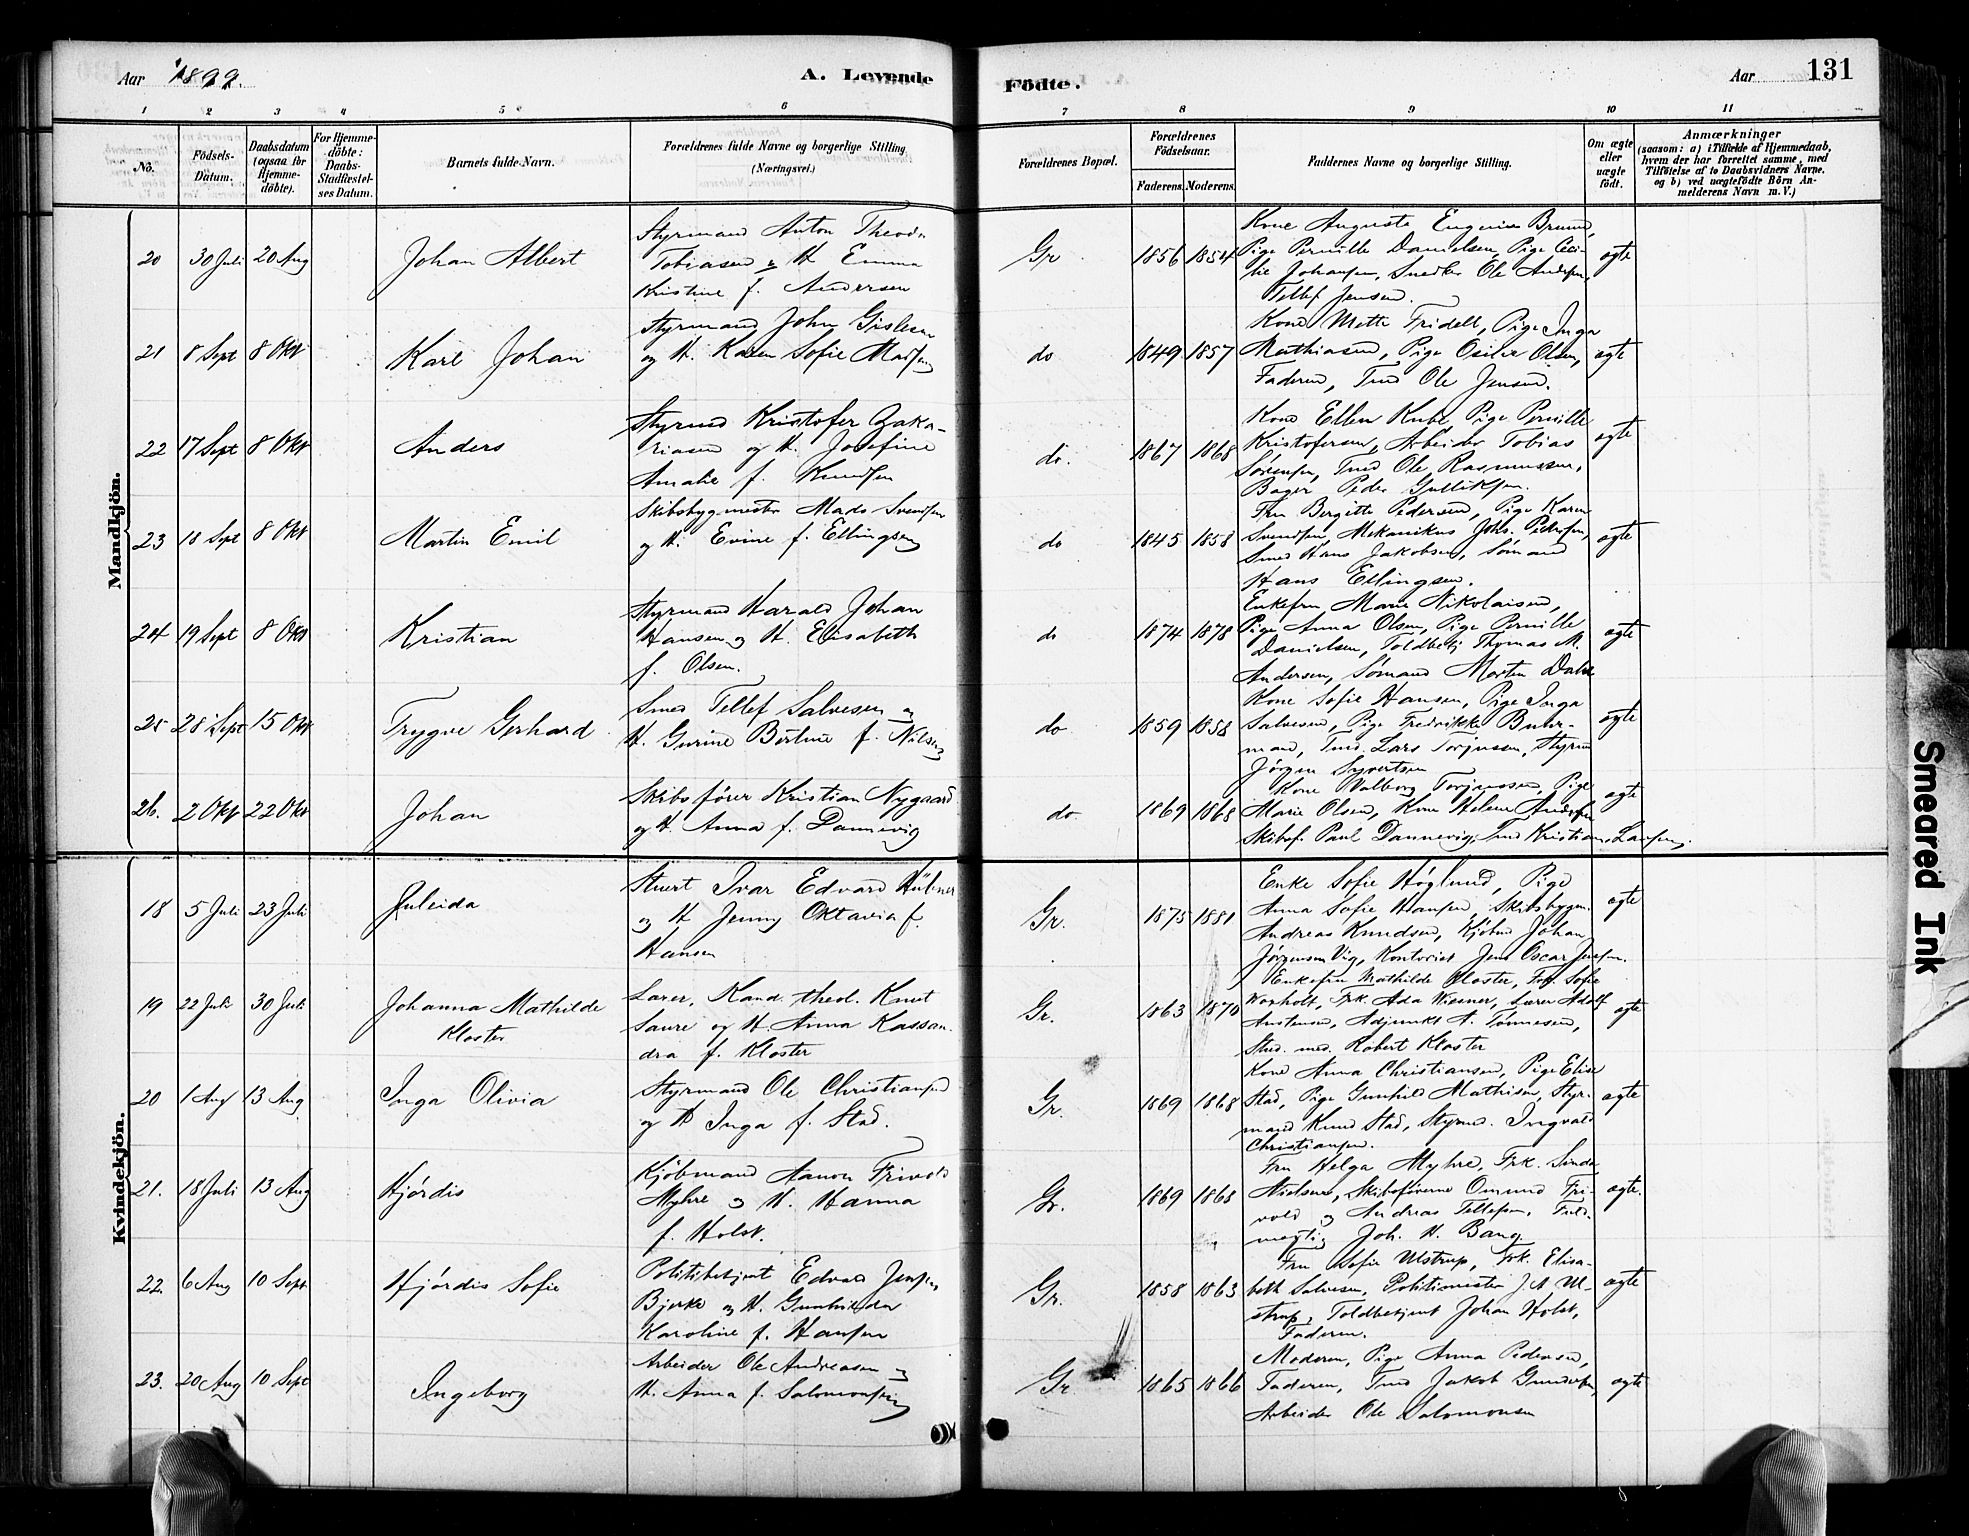 Aar 1899.
A. Levende
Födte.
Aar
131
1 2 3 4 5 6 7 8 9 10 11
No.
Födsels-Datum.
Daabsdatum (ogsaa for Hjemme-döbte).
For Hjemme-döbte: Daabs-Stadfæstel-ses Datum.
Barnets fulde Navn.
Forældrenes fulde Navne og borgerlige Stilling
(Næringsvei.)
Forældrenes Bopæl.
Forældrenes Födselsaar.
Faderens. Moderens.
Faddernes Navne og borgerlige Stilling.
Om ægte eller uægte født.
Anmærkninger
(saasom: a) i Tilfælde af Hjemmedaab,
hvem der har forrettet samme, med
Tilföielse af to Daabsvidners Navne,
og b) ved uægtefödte Börn An-
melderens Navn m. V.)
Mandkjön.
20 30 Juli 20 Aug Johan Albert
Styrmand Anton Theodor
Tobiasen og H. Emma
Kristine f. Andersen
Gr. 1856 1854
Kone Auguste Eugenie Brund,
Pige Pernille Danielsen, Pige Ceci-
lie Johansen, Snedker Ole Andersen,
Tellef Jensen.
ægte
21 8 Sept 8 Okt Karl Johan
Styrmand John Gislesen
og H. Karen Sofie
do 1849 1857
Kone Mette Fridell, Pige Inga
Mathiasen, Pige Olsen,
Faderen, Tmd Ole Jensen.
ægte
22 17 Sept 8 Okt Anders
Styrmd Kristofer Zaka-
riasen og H. Josefine
Amalie f. Knudsen
do. 1867 1868
Kone Ellen Pige Pernille
Kristofersen, Arbeider Tobias
Sörensen, Tmd Ole Rasmussen,
Bager Peder Gulliksen.
ægte
23 18 Sept 8 Okt Martin Emil
Skibsbygmester Mads Svendsen
og H. Evine f. Ellingsen
do 1845 1858
Fru Bergitte Pedersen, Pige Karen
Svendsen, Mekanikus Johs. Pedersen,
Smed Hans Jakobsen, Sømand
Hans Ellingsen.
ægte
24 19 Sept 8 Okt Kristian
Styrmand Harald Johan
Hansen og H. Elisabeth
f. Olsen.
do 1874 1878
Enkefru Marie Nikolaisen,
Pige Anna Olsen, Pige Pernille
Danielsen, Toldbetj Thomas M.
Andersen, Sømand Morten Dahl
ægte
25 28 Sept 15 Okt Trygve Gerhard
Smed Tellef Salvesen og
H. Gurine Bertine f. Nilsen
do 1859 1858
Kone Sofie Hansen, Pige Inga
Salvesen, Pige Fredrikke Buhr-
mand, Tmd. Lars Torjussen, Styrm
Jörgen Syvertsen
ægte
26. 2 Okt 22 Okt Johan
Skibsfører Kristian Nygaard
og H. Anna f. Dannevig
do 1869 1868
Kone Valborg Torjussen, Pige
Marie Olsen, Kone Helene Andersen
Skibsf. Paul Dannevig, Tmd Kristian Larsen.
ægte
Kvindekjön.
18 5 Juli 23 Juli Juleida
Stuert Ivar Edvard Hübner
og H Jenny Oktavia f.
Hansen
Gr. 1875 1881
Enke Sofie Höglund, Pige
Anna Sofie Hansen, Skibsbygm.
Andreas Knudsen, Kjøbmd Johan
Jørgensen Vig, Kontorist Jens Oscar Jensen.
ægte
19 22 Juli 30 Juli Johanna Mathilde
Kloster
Lærer, Kand. theol. Knut
Saure og H Anna Kassan-
dra f. Kloster
Gr. 1863 1870
Enkefru Mathilde Kloster, Frk Sofie
Woxholt, Frk. Ada Wiesner, Lærer Adolf
Austensen, Adjunkt A. Tønnesen,
Stud. med. Robert Kloster
ægte
20 1 Aug 13 Aug Inga Olivia
Styrmand Ole Christiansen
og H Inga f. Stad.
Gr. 1869 1868
Kone Anna Christiansen, Pige Elise
Stad, Pige Gunhild Mathisen, Styr-
mand Knud Stad, Styrmd. Ingvald
Christiansen.
ægte
21. 18 Juli 13 Aug Hjördis
Kjöbmand Aanon Frivold
Myhre og H. Hanna
f. Holst.
Gr. 1869 1868
Fru Helga Myhre, Frk. Sinda
Nielsen, Skibsförerne Omund Fri-
vold og Andreas Tellefsen, Fuld-
mægtig Joh. H. Bang
ægte.
22. 6 Aug 10 Sept Hjórdis Sofie
Politibetjent Edvard Jensen
Bjerke og H. Gunhilda
Karoline f. Hansen
Gr. 1858 1863
Fru Sofie Ulstrup, Frk. Elisa-
beth Salvesen, Politimester J. A. Ul-
strup, Toldbetjent Johan Holst,
Faderen.
ægte
23. 20 Aug 10 Sept Ingeborg
Arbeider Ole Andreasen og
H. Anna f. Salomonsen
Gr 1865 1866
Moderen, Pige Anna Pedersen,
Faderen, Tmd Jakob Gundersen,
Arbeider Ole Salomonsen
ægte
Smeared Ink